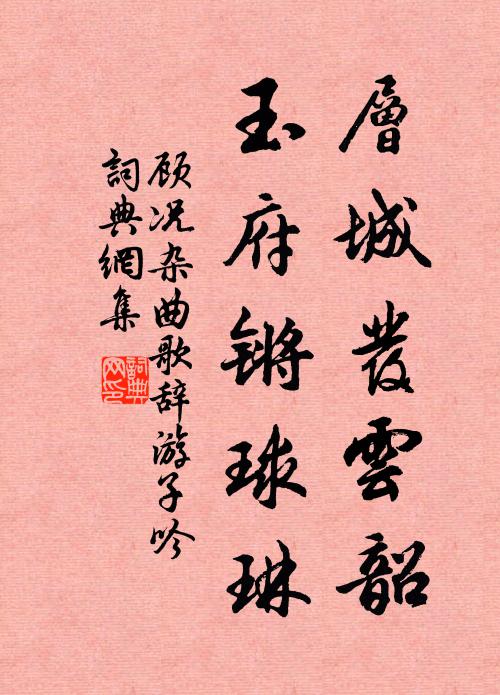 層城發雲韶
玉府鏘球琳
顾况杂曲歌辞游子吟
詞典網集
詞典网印